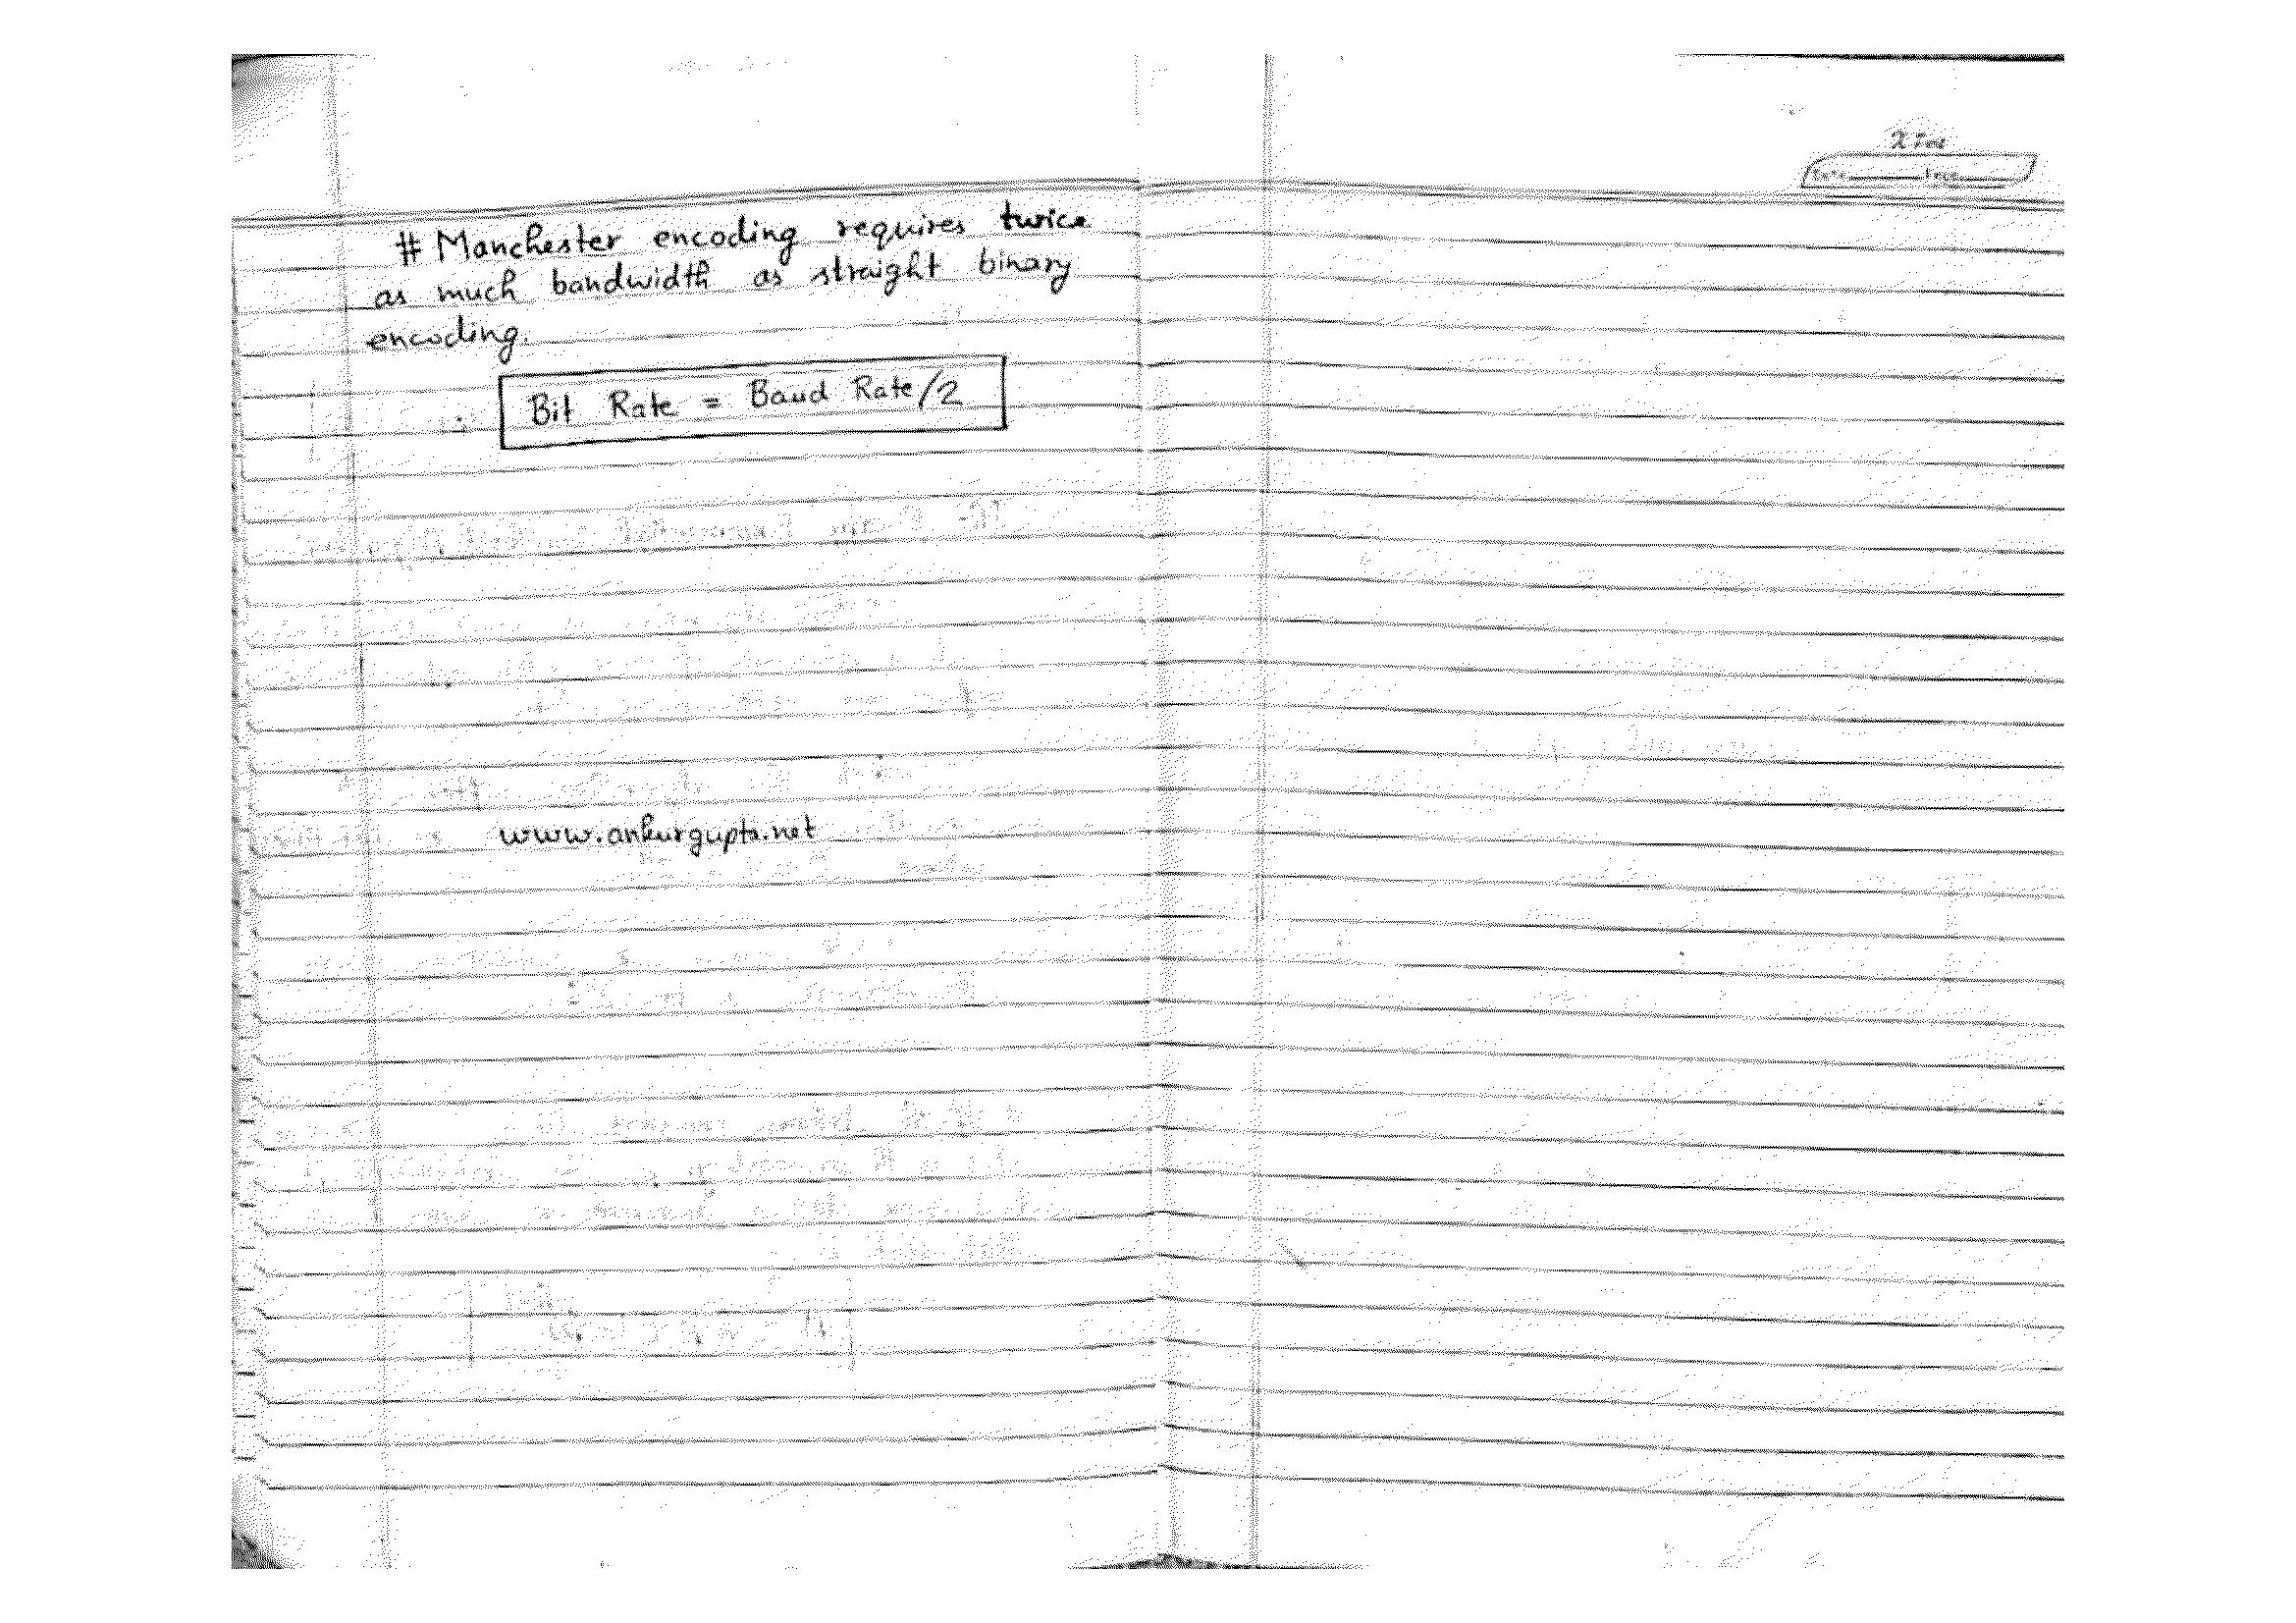 # Manchester encoding requires twice
as much bandwidth as straight binary
encoding.
Bit Rate = Baud Rate/2
www.ankurgupta.net